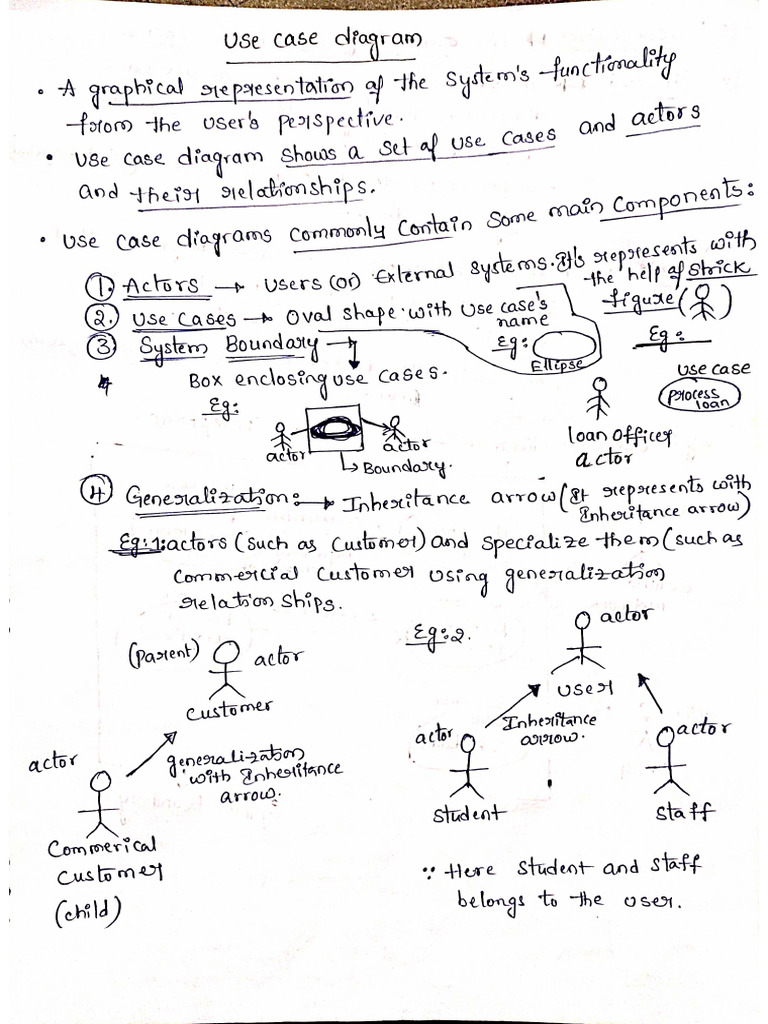 Use case diagram
• A graphical representation of the System's functionality
from the user's perspective.
• use case diagram shows a set of use cases and actors
and their relationships.
• Use case diagrams commonly contain some main components:
1. Actors → Users (or) External systems. It's represents with
the help of Strick
figure ( )
2. Use Cases → Oval shape with Use case's
name
Eg:
Ellipse
3 System Boundary →
Box enclosing use cases.
Eg:
actor
actor
↳ Boundary.
Eg:
loan officer
actor
use case
process
loan
4 Generalization: → Inheritance arrow (It represents with
Inheritance arrow)
Eg:1: actors (such as customer) and specialize them (such as
Commercial customer using generalization
relation ships.
(parent)
actor
Customer
generalization
with Inheritance
arrow.
actor
Commerical
Customer
(child)
Eg:2.
actor
user
Inheritance
arrow.
actor
Student
actor
Staff
∵ Here Student and Staff
belongs to the user.